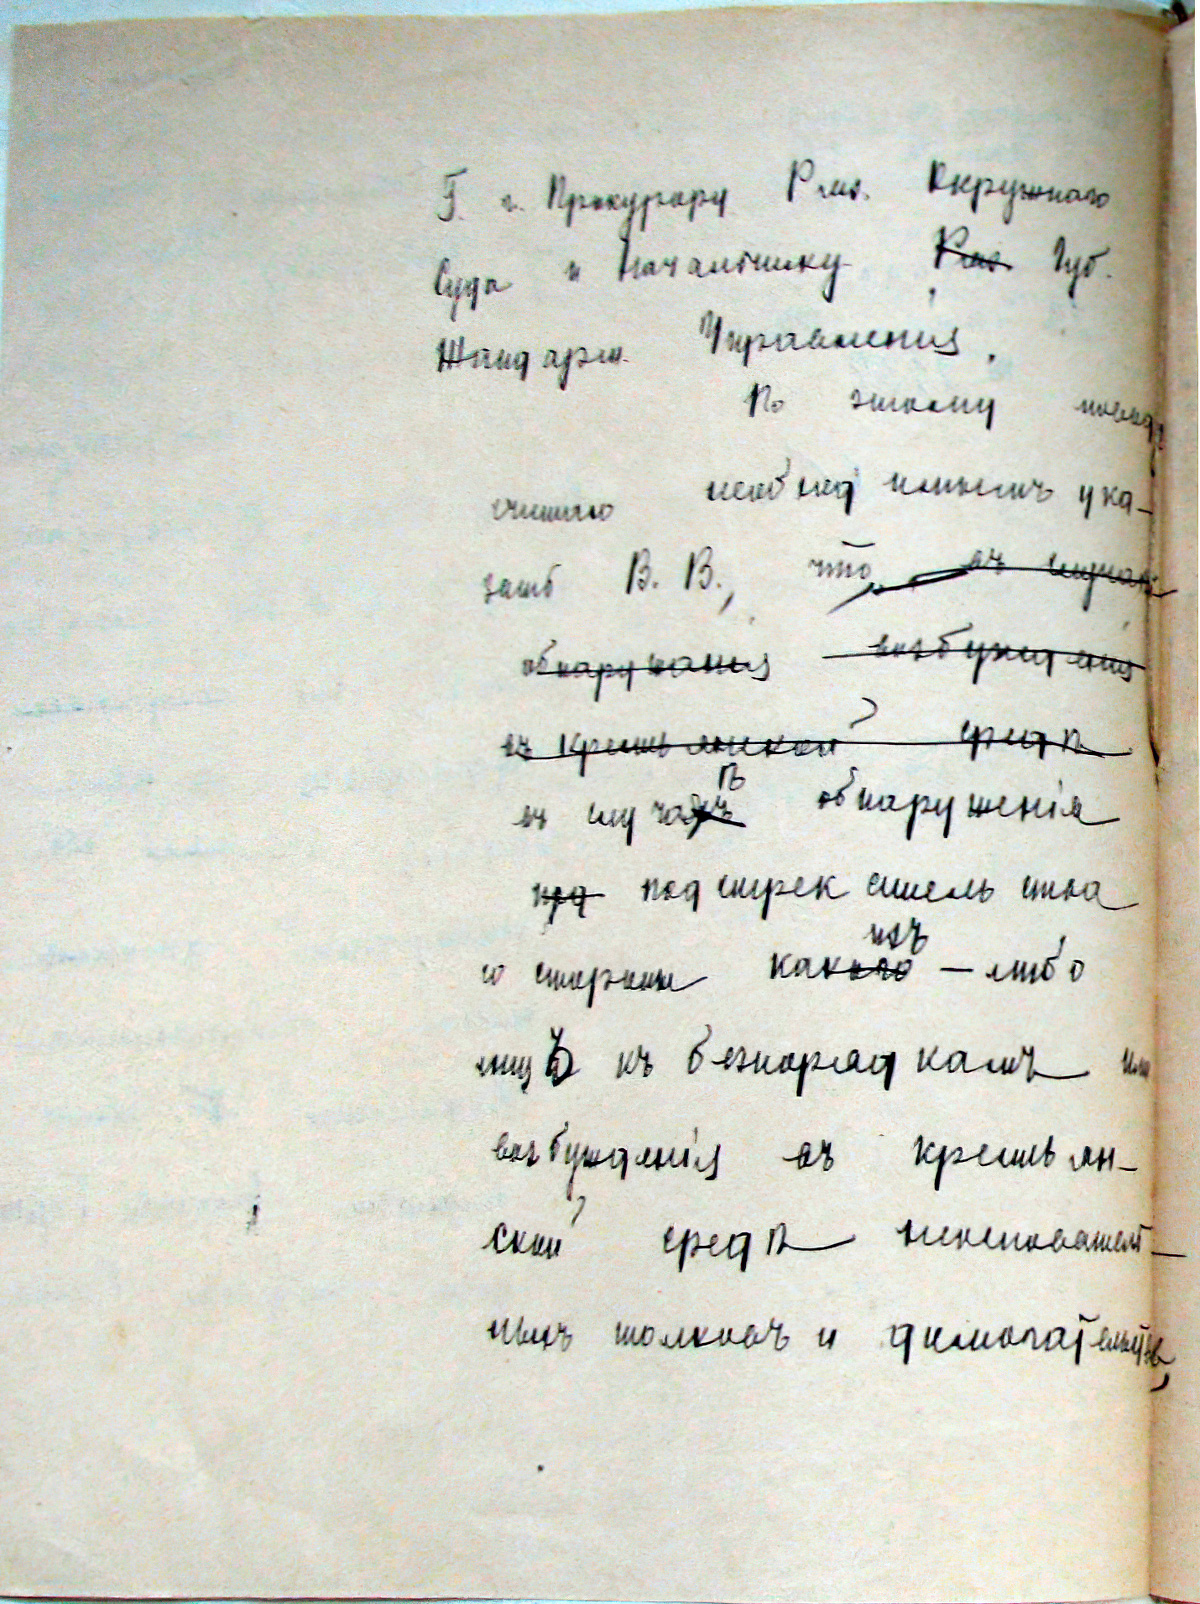 Г. г. Прокурору Ряз. Окружнаго
Суда и Начальнику Ряз. Губ.
Жандарм. Управленія.
По этому
считаю необходимымъ ука-
зать В. В., что въ случаѣ
обнаруженія возбужденія
въ крестьянской средѣ
въ случаѣ обнаруженія
под подстрекательства
со стороны какихъ-либо
лицъ къ безпорядкамъ или
возбужденія въ крестьян-
ской средѣ неосновател-
ныхъ толковъ и домогательствъ,